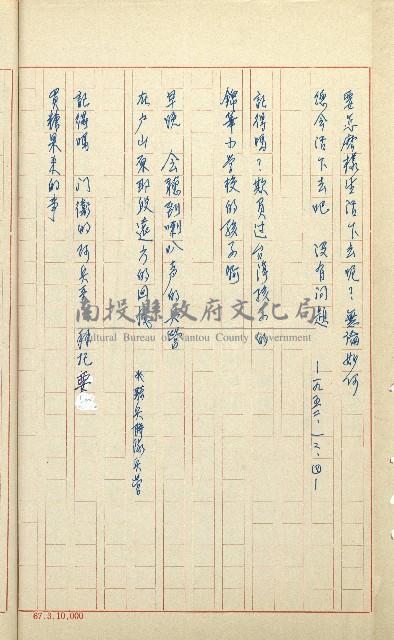 要怎麼樣生活下去呢?無論如何
總会活下去吧 没有问题
—一九五二、一二、四—
記得嗎?欺負过台灣孩子的
錦華小学校的孩子啊
早晚 会聽到喇叭声的兵營
在户山原那段遠方的回憶
*騎兵聯隊兵營
記得嗎 门衛的阿兵哥 拜托要
買糖果来的事
南投縣政府文化局
Cultural Bureau of Nantou County Government
67.3.10,000